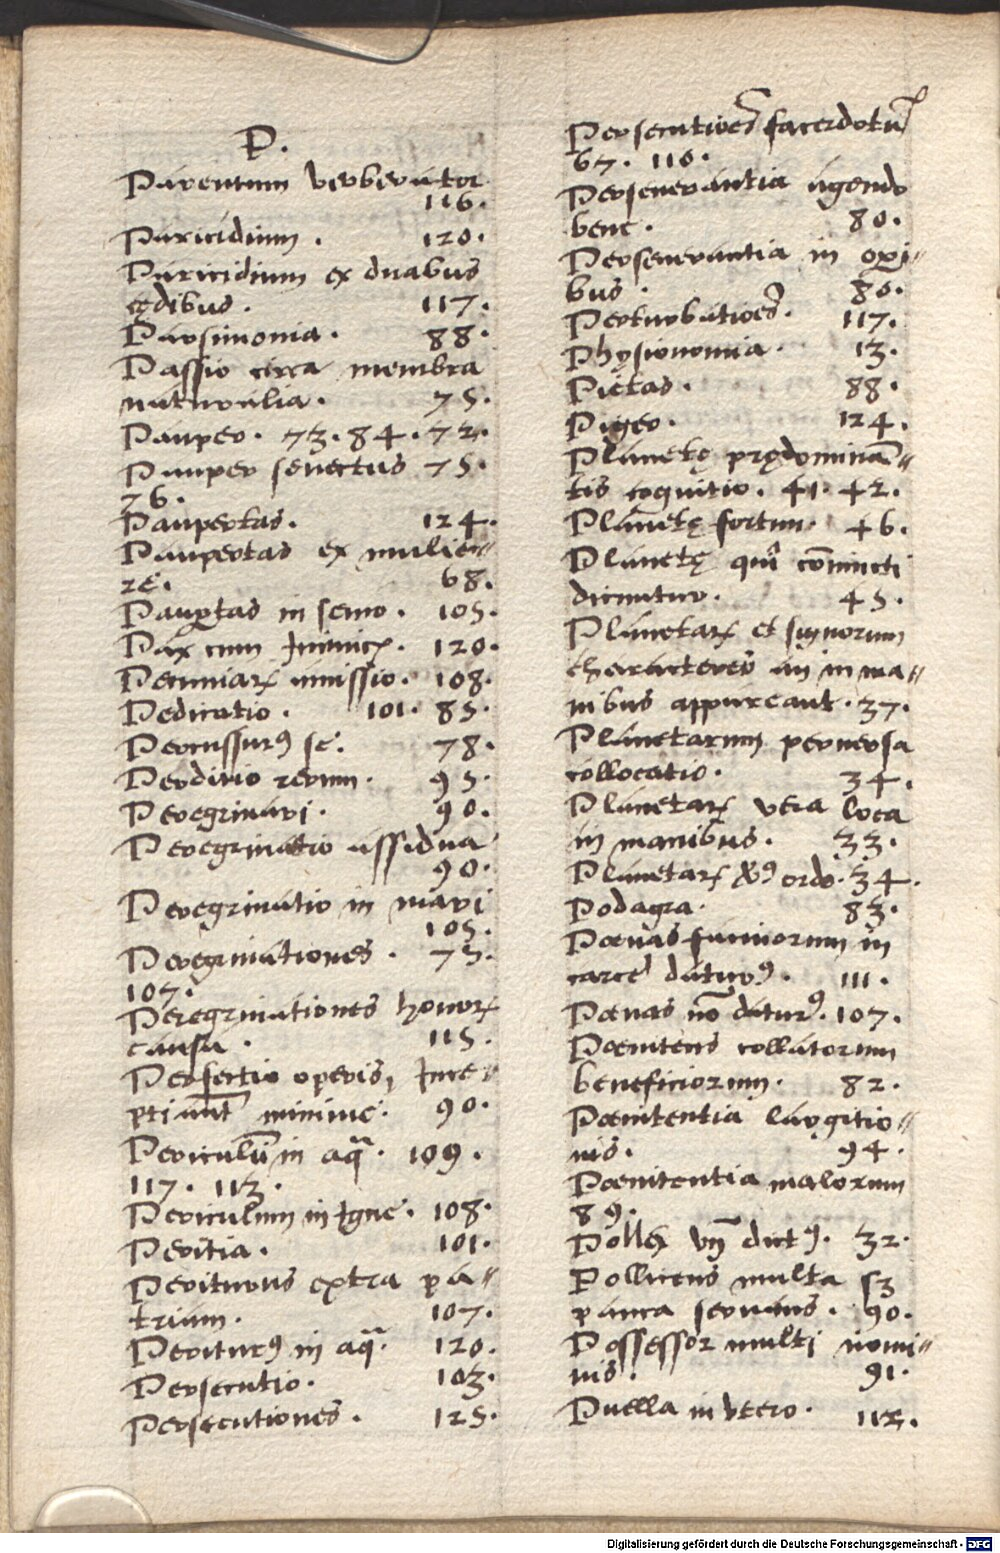 P.
Parentum verberator
116.
Paricidium . 120.
Paricidium ex duabus
ędibus . 117.
Parsimonia . 88.
Passio circa membra
naturalia . 75.
Pauper . 73. 84. 72.
Pauper senectus 75.
76.
Paupertas. 124.
Paupertas ex mulie〃
re. 68.
Paup̱tas in senio . 105.
Pax cum Inimicꝭ. 120.
Pecuniaꝝ amissio. 108.
Pedicatio . 101. 85.
Percussurꝰ se. 78.
Perditio rerum . 95.
Peregrinari . 90.
Peregrinatio assidua
90.
Peregrinatio in mari
105.
Peregrinationes . 75.
107.
Peregrinationes honoꝝ
causa . 115.
Perfectio operis, Ince〃
pti aūt minime. 90.
Periculū in aqͣ. 109.
117. 113.
Periculum in Igne. 108.
Peritia . 101.
Periturus extra pa〃
triam. 107.
Periturꝰ in aqͣ. 120.
Persecutio . 103.
Persecutiones . 125.
Persecutiones sacerdotū
67. 110.
Perseuerantia agendo
bene . 80.
Perseuerantia in oꝑi〃
bus . 80.
Perturbationes. 117.
Physionomia . 13.
Pietas . 88.
Piger . 124.
Planetę prędominā〃
tis cognitio. 41. 42.
Planetę fortun. 46.
Planetę quī cōiuncti
dicuntur. 45.
Planetaꝝ et signorum
characteres an in ma〃
nibus appareant. 37.
Planetarum peruersa
collocatio. 34.
Planetaꝝ vera loca
in manibus . 33.
Planetaꝝ ordo. 34.
Podagra . 83.
Pœnas furciorum in
carcē daturꝰ. 111.
Pœnas nō daturꝰ. 107.
Pœnitens collatorum
beneficiorum. 82.
Pœnitentia largitio〃
nis. 94.
Pœnitentia malorum
89.
Pollex vn̄ dictꝰ. 32.
Pollicens multa sꝫ
pauca seruans . 90.
Possessor multi nomi〃
nis. 91.
Puella in vtero . 112.
Digitalisierung gefördert durch die Deutsche Forschungsgemeinschaft - DFG